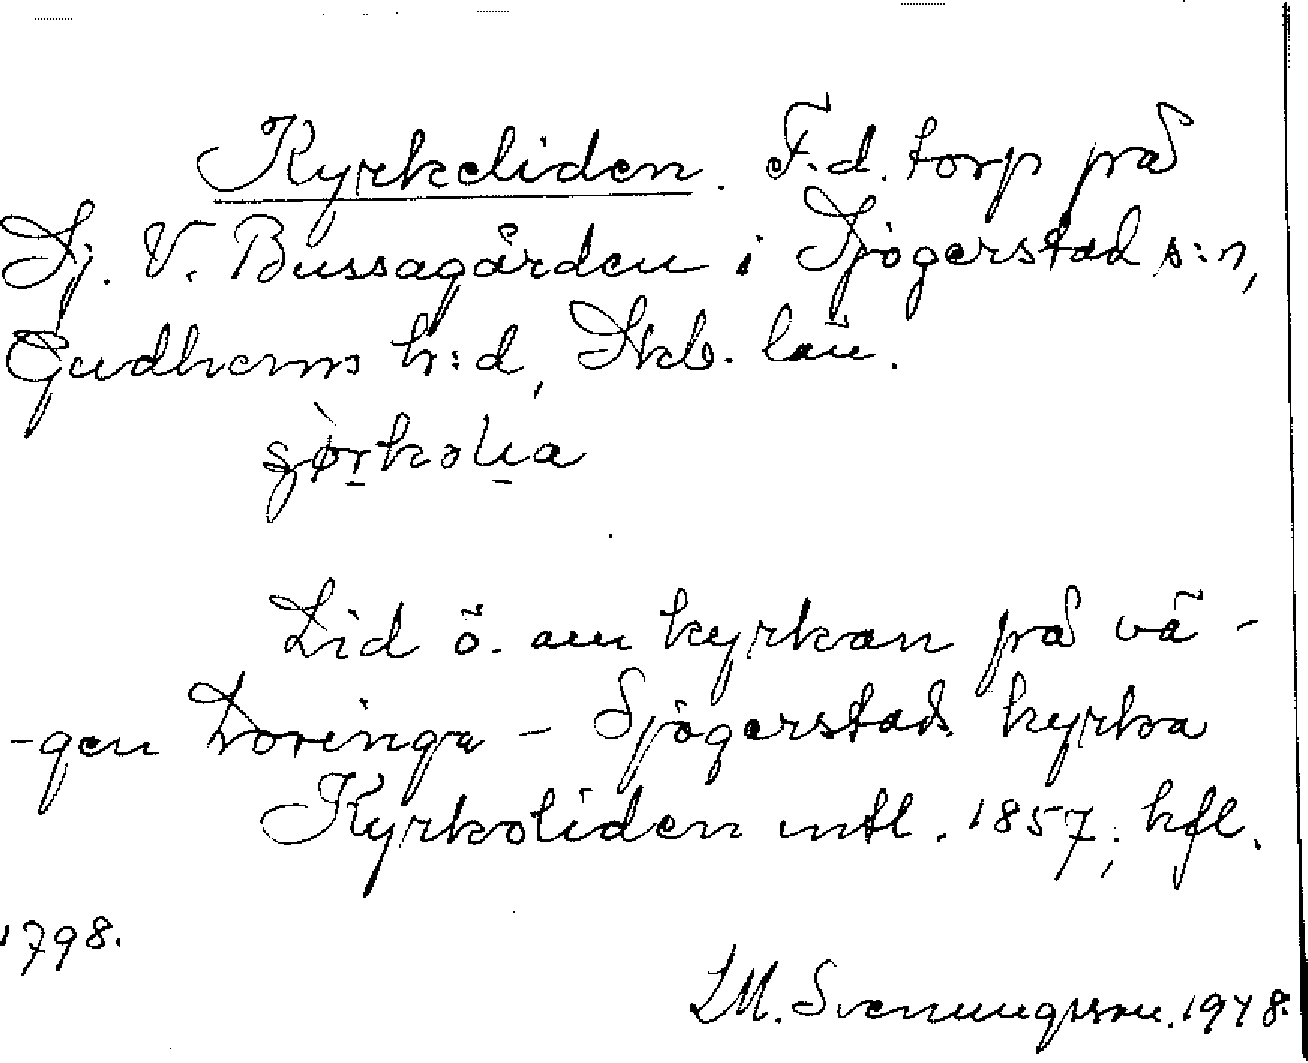 Kyrkeliden. F.d. torp på
Sj. V. Bussagården i Sjögerstad s:n,
Gudhems h:d, Skb. län.
Lid ö. om kyrkan på vä-
-gen Doringa - Sjögerstads kyrka
Kyrkoliden mtl. 1857; hfl.
1798.
LM. Svenungsson. 1948.